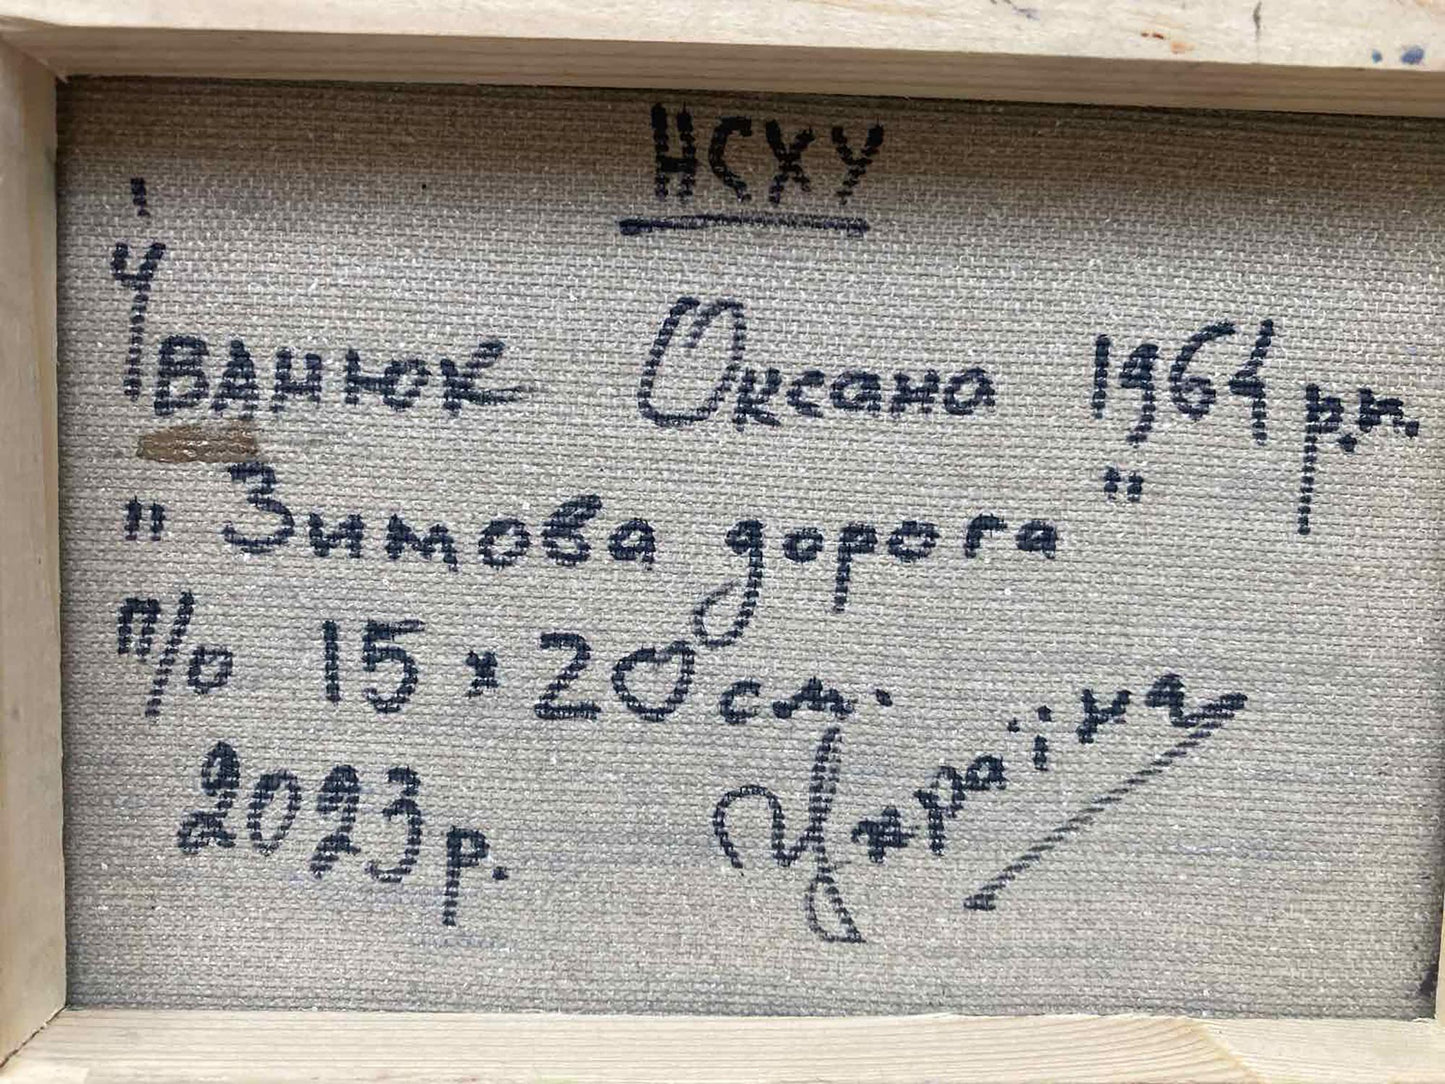 НСХУ
Іванюк Оксана 1964 р.н.
"Зимова дорога"
п/о 15 x 20 см.
2023 р.
Україна